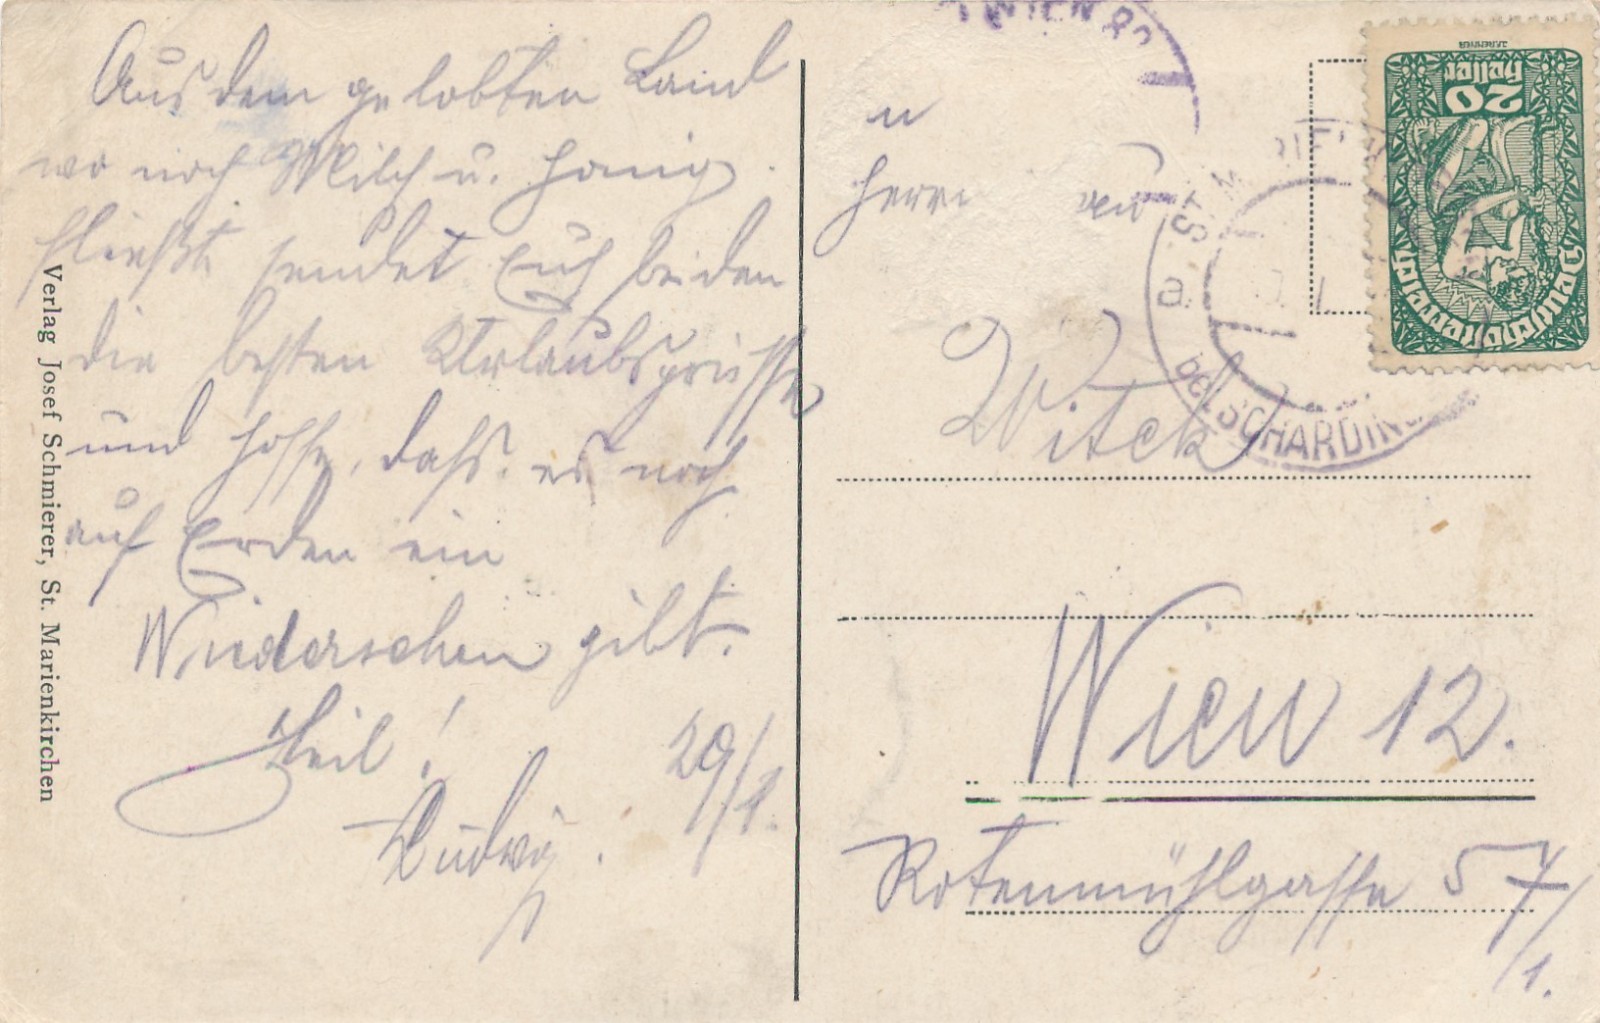 Aus dem gelobten Land
wo noch Milch u. Honig
fließt sendet Euch beiden
die besten Urlaubsgrüsse
und hoffe, dass es noch
auf Erden ein
Wiedersehen gibt.
Heil! 29/1.
Ludwig.
Verlag Josef Schmierer, St. Marienkirchen
WIEN 82
u
Herrn
Witek
Wien 12.
Rotenmühlgasse 57/1.
20
Heller
Deutschösterreich
a
bei SCHÄRDING